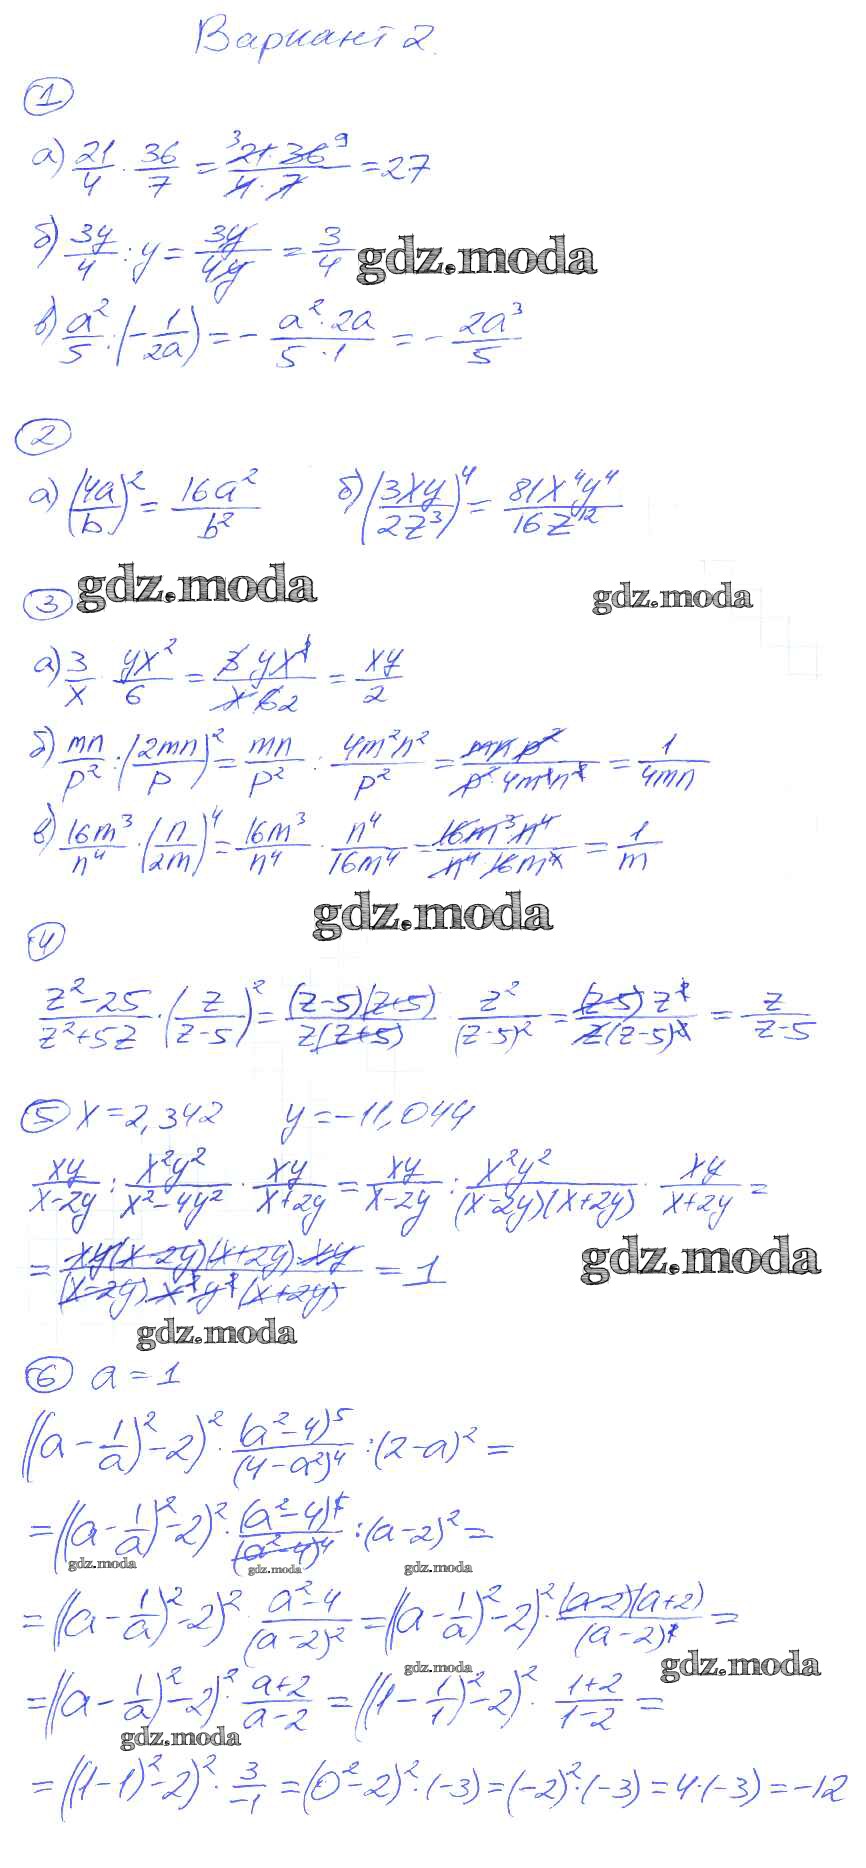 Вариант 2.
1
а) 21/4 · 36/7 = ³21·36⁹/4·7 = 27
б) 3y/4 : y = 3y/4y = 3/4 gdz.moda
в) a²/5 : (-1/2a) = - a²·2a/5·1 = - 2a³/5
2
а) (4a/b)² = 16a²/b² б) (3xy/2z³)⁴ = 81x⁴y⁴/16z¹²
gdz.moda gdz.moda
3
а) 3/x · yx²/6 = 3yx²/x·6 2 = xy/2
б) mn/p² : (2mn/p)² = mn/p² : 4m²n²/p² = mn p²/p²·4m²n² = 1/4mn
в) 16m³/n⁴ · (n/2m)⁴ = 16m³/n⁴ · n⁴/16m⁴ = 16m³n⁴/n⁴·16m⁴ = 1/m
gdz.moda
4
z²-25/z²+5z · (z/z-5)² = (z-5)(z+5)/z(z+5) · z²/(z-5)² = (z-5)z²/z(z-5)² = z/z-5
5 x = 2,342 y = -11,044
xy/x-2y : x²y²/x²-4y² · xy/x+2y = xy/x-2y : x²y²/(x-2y)(x+2y) · xy/x+2y =
= xy(x-2y)(x+2y)·xy/(x-2y)·x²y²(x+2y) = 1 gdz.moda
gdz.moda
6 a = 1
((a - 1/a)² - 2)² · (a²-4)⁵/(4-a²)⁴ : (2-a)² =
= ((a - 1/a)² - 2)² · (a²-4)⁵/(a²-4)⁴ : (a-2)² =
gdz.moda gdz.moda gdz.moda
= ((a - 1/a)² - 2)² · a²-4/(a-2)² = ((a - 1/a)² - 2)² · (a-2)(a+2)/(a-2)² =
gdz.moda gdz.moda
= ((a - 1/a)² - 2)² · a+2/a-2 = ((1 - 1/1)² - 2)² · 1+2/1-2 =
gdz.moda
= ((1-1)² - 2)² · 3/-1 = (0² - 2)² · (-3) = (-2)² · (-3) = 4·(-3) = -12